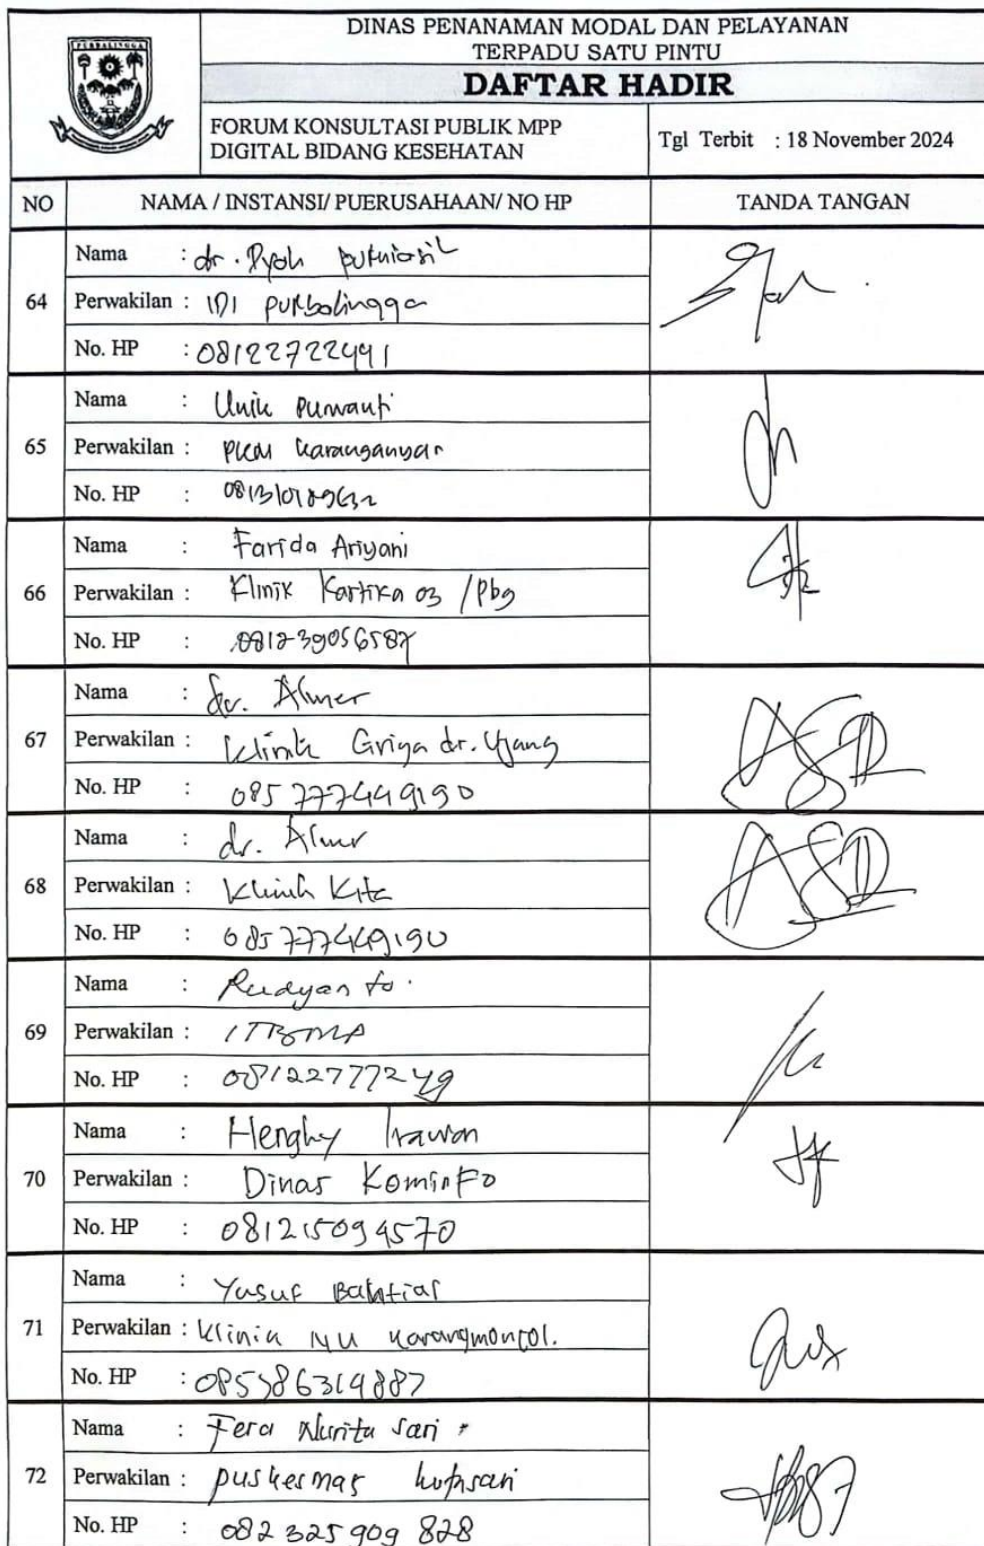 PURBALINGGA
DINAS PENANAMAN MODAL DAN PELAYANAN
TERPADU SATU PINTU
DAFTAR HADIR
FORUM KONSULTASI PUBLIK MPP
DIGITAL BIDANG KESEHATAN
Tgl Terbit : 18 November 2024
NO NAMA / INSTANSI/ PUERUSAHAAN/ NO HP TANDA TANGAN
64
Nama : dr. Dyah
Perwakilan : IDI purbalingga
No. HP : 08122722491
65
Nama : Unik purwanti
Perwakilan : PKM karanganyar
No. HP :
66
Nama : Farida Ariyani
Perwakilan : Klinik Kartika 03 /Pbg
No. HP :
67
Nama : dr. Almer
Perwakilan : Klinik Griya dr. Ujang
No. HP : 085777449190
68
Nama : dr. Almer
Perwakilan : Klinik Kita
No. HP : 085777449190
69
Nama : Rudyanto.
Perwakilan : ITBMP
No. HP : 081227777249
70
Nama : Henghy Irawan
Perwakilan : Dinas KominFo
No. HP : 081215094570
71
Nama : Yusuf Bahtiar
Perwakilan : Klinik NU karangmoncol.
No. HP :
72
Nama : Fera Nurita sari
Perwakilan : puskesmas kutasari
No. HP : 082 325 909 828